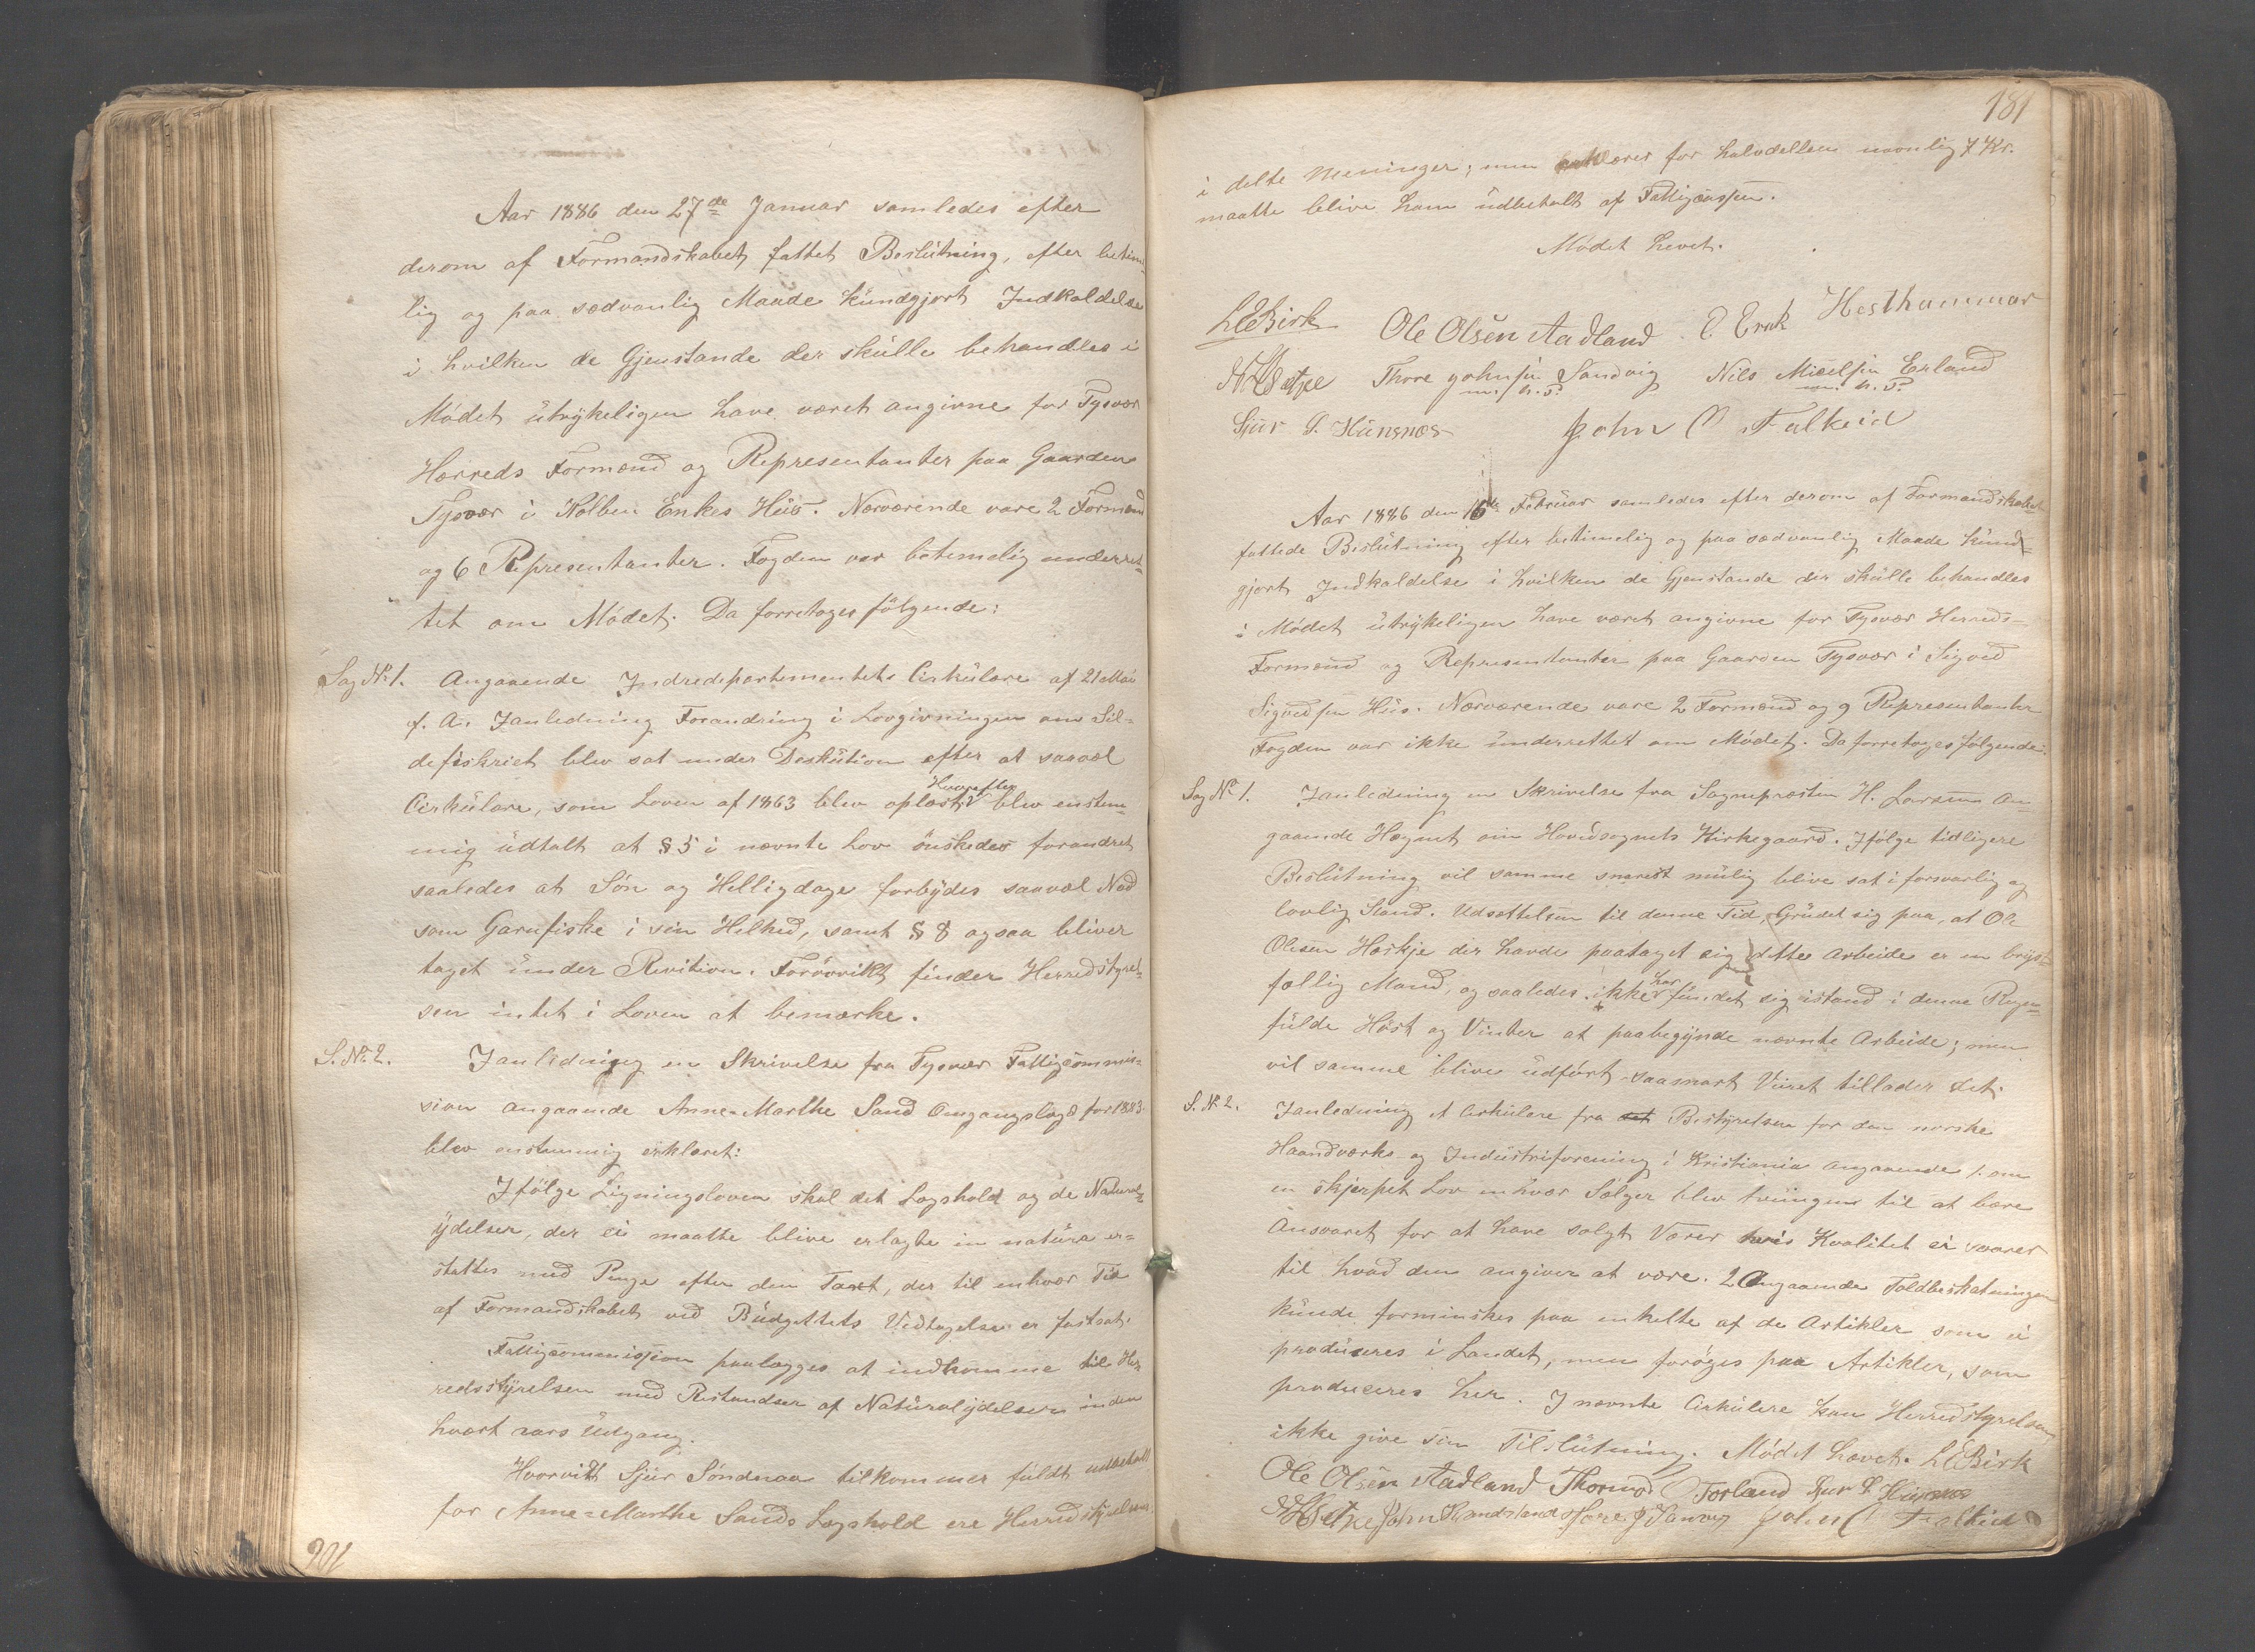 Aar 1886 den 27de Januar samledes efter
derom af Formandskabet fattet Beslutning, efter betime-
lig og paa sædvanlig Maade kundgjort Indkaldelse
i hvilken de Gjenstande der skulle behandles i
Mødet utrykeligen have været angivne for Tysvær
Herreds Formænd og Representanter paa Gaarden
Tysvær i Kolben Enkes Hus. Nærværende vare 2 Formænd
og 6 Representanter. Fogden var betimelig underret-
tet om Mødet. Da forretoges følgende:
Sag No 1. Angaaende Indredepartementets Cirkulære af 21 Mai
f. A. Ianledning Forandring i Lovgivningen om Sil-
defiskriet blev sat under Deskution efter at saavel
Cirkulære, som Loven af 1863 blev oplæst. Hvorefter blev enstem-
mig udtalt at § 5 i nævnte Lov ønskedes forandret
saaledes at Søn og Helligdage forbydes saavæl Nod
som Garnfiske i sin Helhed, samt § 8 ogsaa bliver
taget under Revition. Forøvrikt finder Herredstyrel-
sen intet i Loven at bemærke.
S. No 2. Ianledning en Skrivelse fra Tysvær Fattigcommis-
sion angaaende Anne-Marthe Sand Omgangslægd for 1883
blev enstemmig erklæret:
Ifølge Ligningsloven skal det Lægshold og de Natural-
ydelser, der ei maatte blive erlagte in natura er-
stattes med Penge efter den Taxt, der til enhver Tid
af Formandskabet ved Budgettets Vedtagelse er fastsat.
Fattigcommisjion paalægges at indkomme til Her-
redsstyrelsen med Restandser af Naturalydelser inden
hvært aars Udgang.
Hvorvidt Sjur Søndnaa tilkommer fuldt udbetalt
for Anne-Marthe Sands Lægshold ere Herredstyrelsen
201
181
i delte Meninger; men erklærer for halvdellen navnlig 7 Kr.
maatte blive ham udbetalt af Fattigcassen.
Mødet hevet.
LEBirk Ole Olsen Aadland. E Erak Hesthammar
Thore Johnsen Sandvig Nils Mickelsen Erland
m. h. P. m. h. P.
Sjur S. Hunsnæs John C Falkeid
Aar 1886 den 16de Februar samledes efter derom af Formandskabet
fattede Beslutning efter betimelig og paa sædvanlig Maade kund-
gjort Indkaldelse i hvilken de Gjenstande der skulle behandles
i Mødet utrykeligen have været angivne for Tysvær Herreds-
Formænd og Representanter paa Gaarden Tysvær i Sigved
Sigvedsen Hus. Nærværende vare 2 Formænd og 9 Representanter
Fogden var ikke underrettet om Mødet. Da forretoges følgende:
Sag No 1. Ianledning en Skrivelse fra Sognepresten H. Larsen an-
gaaende Hægnet om Hovedsognets Kirkegaard. Ifølge tidligere
Beslutning vil samme snarest mulig blive sat i forsvarlig og
lovlig Stand. Udsættelsen til denne Tid, Grudet sig paa, at Ole
Olesen Haskje der havde paataget sig dette Arbeide er en bryst-
fællig Mand, og saaledes ikke har fundet sig istand i denne Regn-
fulde Høst og Vinter at paabegynde nævnte Arbeide; men
vil samme blive udført saasnart Veiret tillader det.
S. No 2. Ianledning et Cirkulære fra det Bestyrelsen for den norske
Haandværks- og Industriforening i Kristiania angaaende 1. om
en skjærpet Lov enhver Sølger blev tvungen til at bære
Ansvaret for at have solgt Varer hvis Kvalitet ei svarer
til hvad den angives at være. 2 Angaaende Toldbeskatningen
kunde forminskes paa enkelte af de Artikler som ei
produceres i Landet, men forøges paa Artikler, som
produceres her. I nævnte Cirkulære kan Herredstyrelsen
ikke give sin Tilslutning. Mødet hævet. LEBirk
Ole Olsen Aadland Thormod Førland Sjur S Hunsnæs
John Thore J Sanvig John C Falkeid